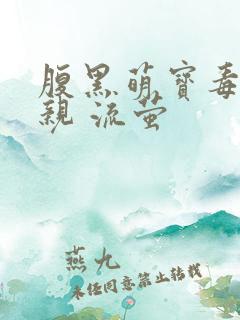 腹黑萌寶毒
親 流萤
燕九
未经同意禁止转载